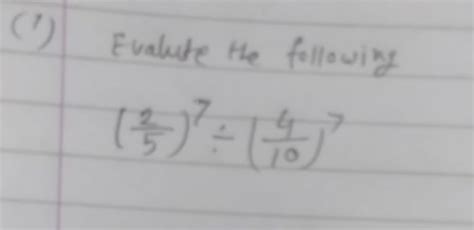 (1) Evalute the following
(2/5)^7 ÷ (4/10)^7